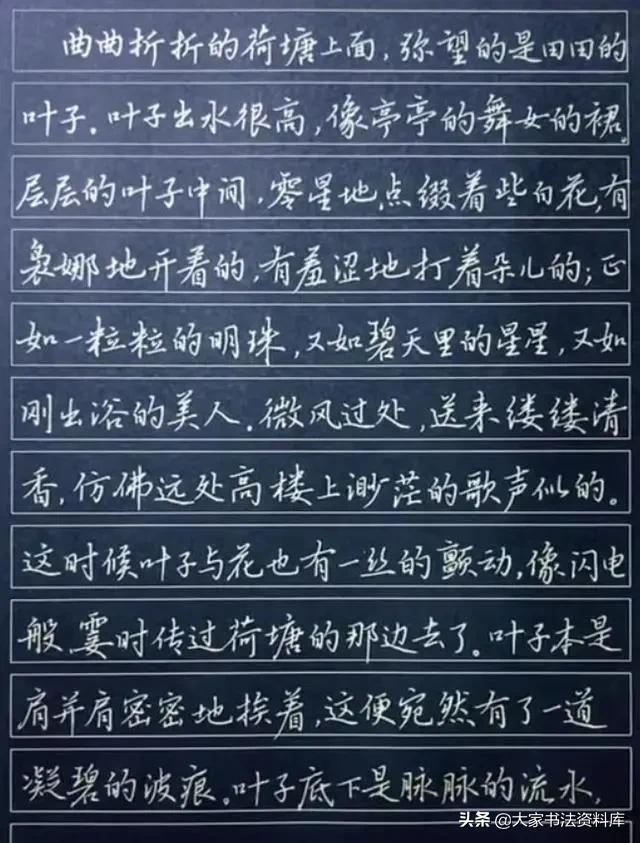 曲曲折折的荷塘上面,弥望的是田田的
叶子.叶子出水很高,像亭亭的舞女的裙.
层层的叶子中间,零星地点缀着些白花,有
袅娜地开着的,有羞涩地打着朵儿的;正
如一粒粒的明珠,又如碧天里的星星,又如
刚出浴的美人.微风过处,送来缕缕清
香,仿佛远处高楼上渺茫的歌声似的。
这时候叶子与花也有一丝的颤动,像闪电
般,霎时传过荷塘的那边去了。叶子本是
肩并肩密密地挨着,这便宛然有了一道
凝碧的波痕。叶子底下是脉脉的流水,
头条 @大家书法资料库